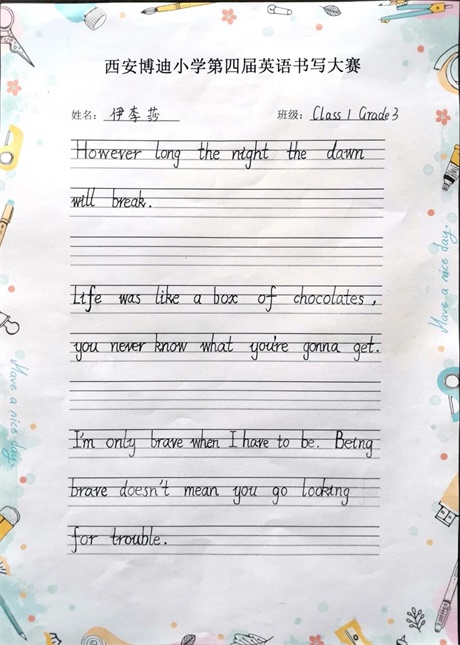 西安博迪小学第四届英语书写大赛
姓名: 伊李莎 班级: Class 1 Grade 3
However long the night the dawn
will break.
Life was like a box of chocolates,
you never know what you're gonna get.
I'm only brave when I have to be. Being
brave doesn't mean you go looking
for trouble.
Have a nice day.
Have a nice day.